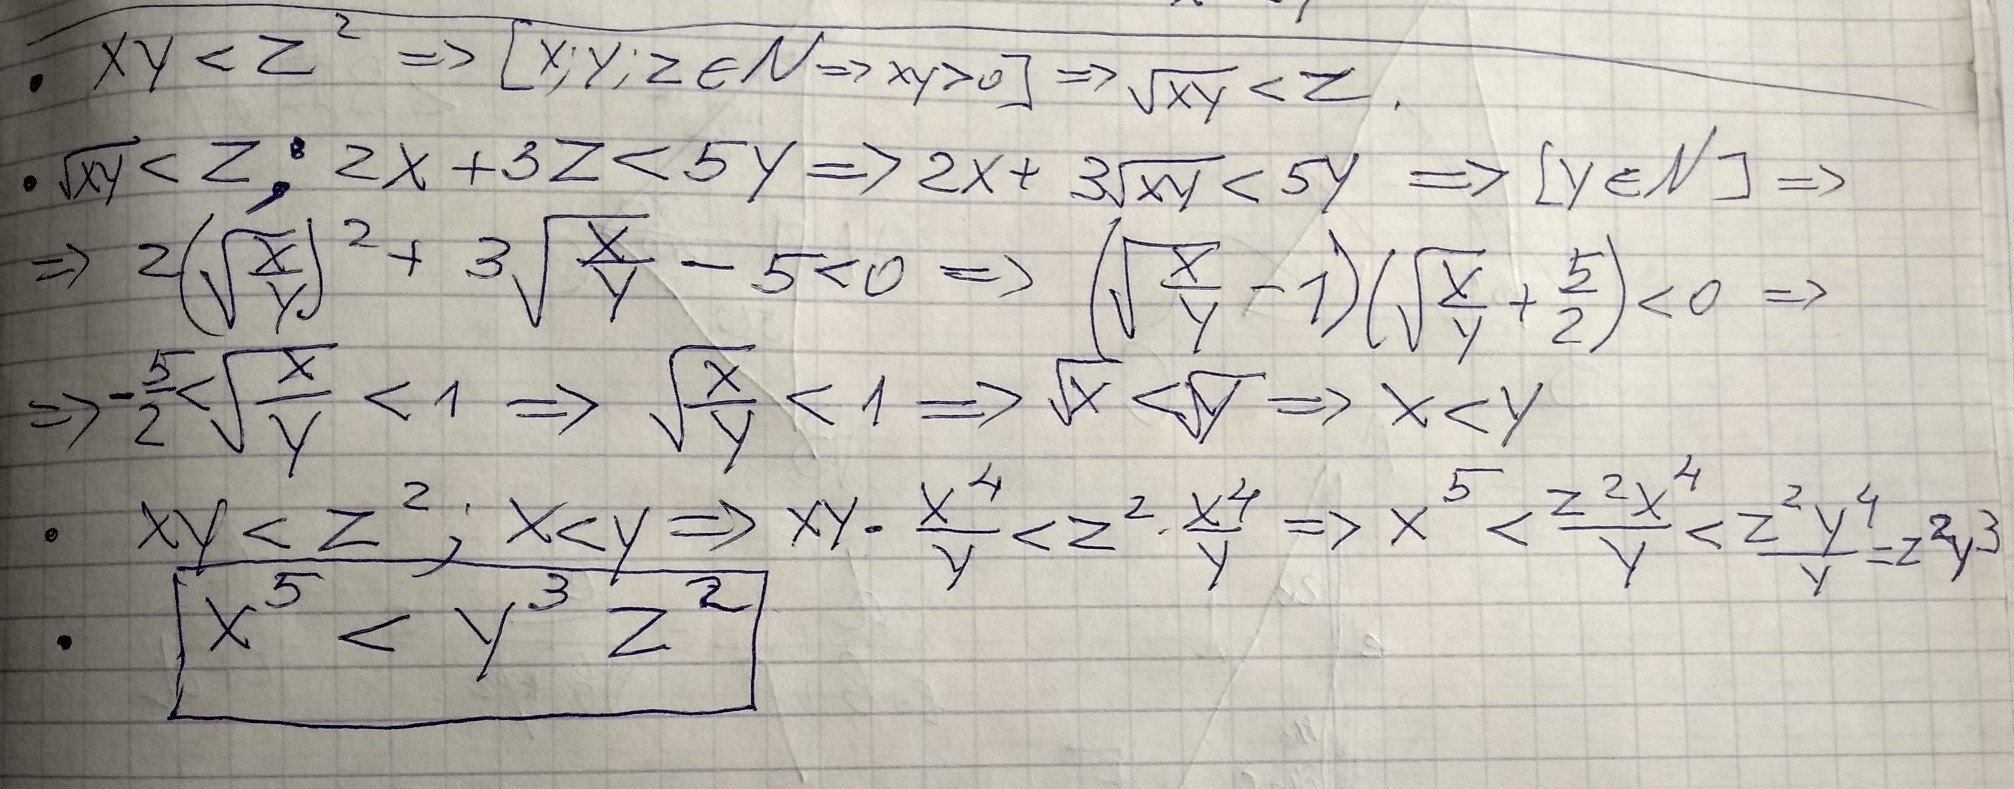 • xy < z² => [x;y;z∈N => xy>0] => √xy < z.
• √xy < z; 2x + 3z < 5y => 2x + 3√xy < 5y => [y∈N] =>
=> 2(√(x/y))² + 3√(x/y) - 5 < 0 => (√(x/y) - 1)(√(x/y) + 5/2) < 0 =>
=> -5/2 < √(x/y) < 1 => √(x/y) < 1 => √x < √y => x < y
• xy < z²; x < y => xy · x⁴/y < z² · x⁴/y => x⁵ < z²x⁴/y < z²y⁴/y = z²y³
• x⁵ < y³ z²